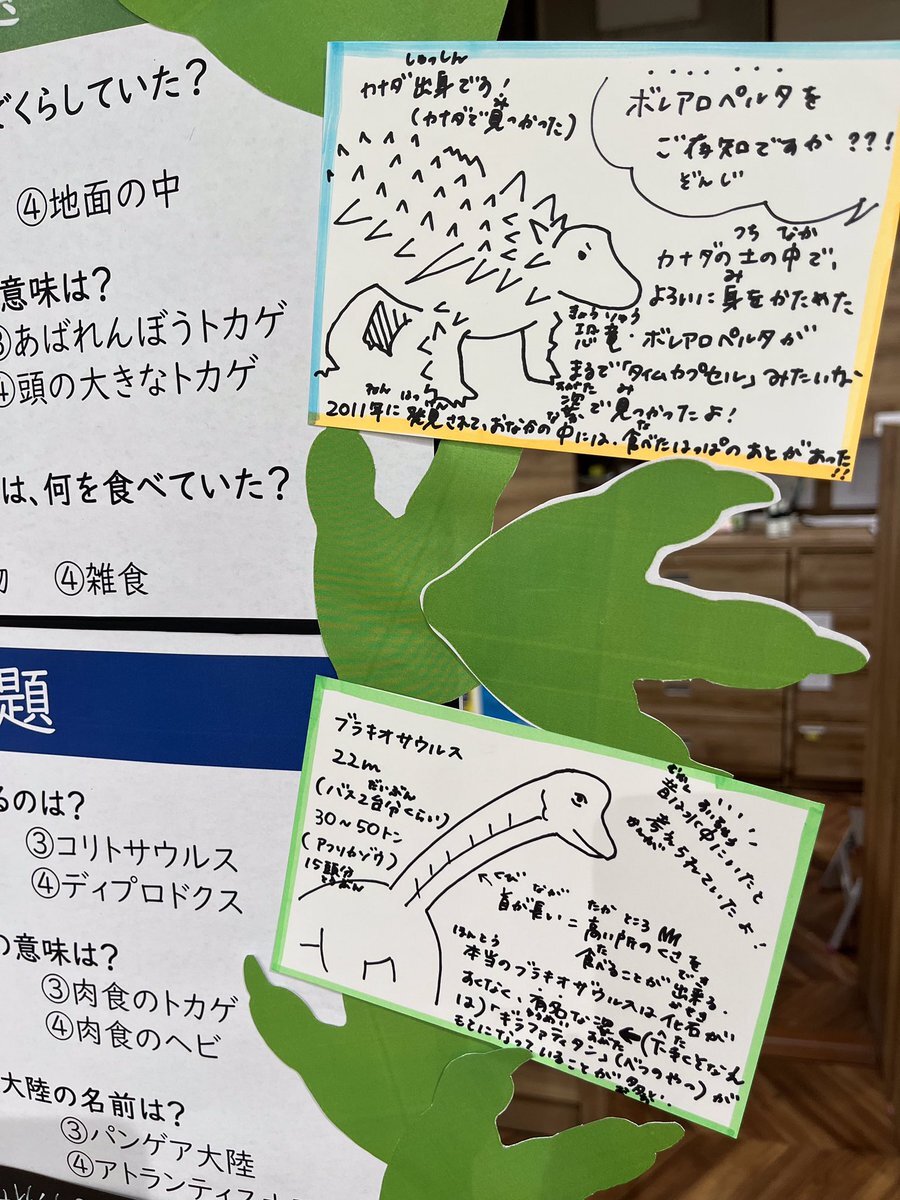 どくらしていた?
④地面の中
意味は?
③あばれんぼうトカゲ
④頭の大きなトカゲ
は、何を食べていた?
物 ④雑食
題
るのは?
③コリトサウルス
④ディプロドクス
の意味は?
③肉食のトカゲ
④肉食のヘビ
大陸の名前は?
③パンゲア大陸
④アトランティス
しゅっしん
カナダ出身です!
み
(カナダで見つかった)
ボレアロペルタを
ご存知ですか??!
ぞんじ
つち なか
カナダの土の中で、
み
よろいに身をかためた
きょうりゅう
恐竜・ボレアロペルタが
まるで「タイムカプセル」みたいな
すがた み
姿で見つかったよ!
ねん はっけん
2011年に発見されて、おなかの中には、食べたはっぱのあとがあった!!
ブラキオサウルス
22m
だいぶん
(バス2台分くらい)
30〜50トン
(アフリカゾウ)
15頭分
とうぶん
昔は水中にいたと
考えられていたよ!
かんが
くび なが
首が長い=
たか ところ
高い所のくさを
た でき
食べることが出来る。
ほんとう
本当のブラキオサウルスは化石が
かせき
少くなく、有名な姿←(下手くそなえ
ゆうめい すがた
は)「ギラファティタン」(べつのやつ)が
もとになっていることが多い。